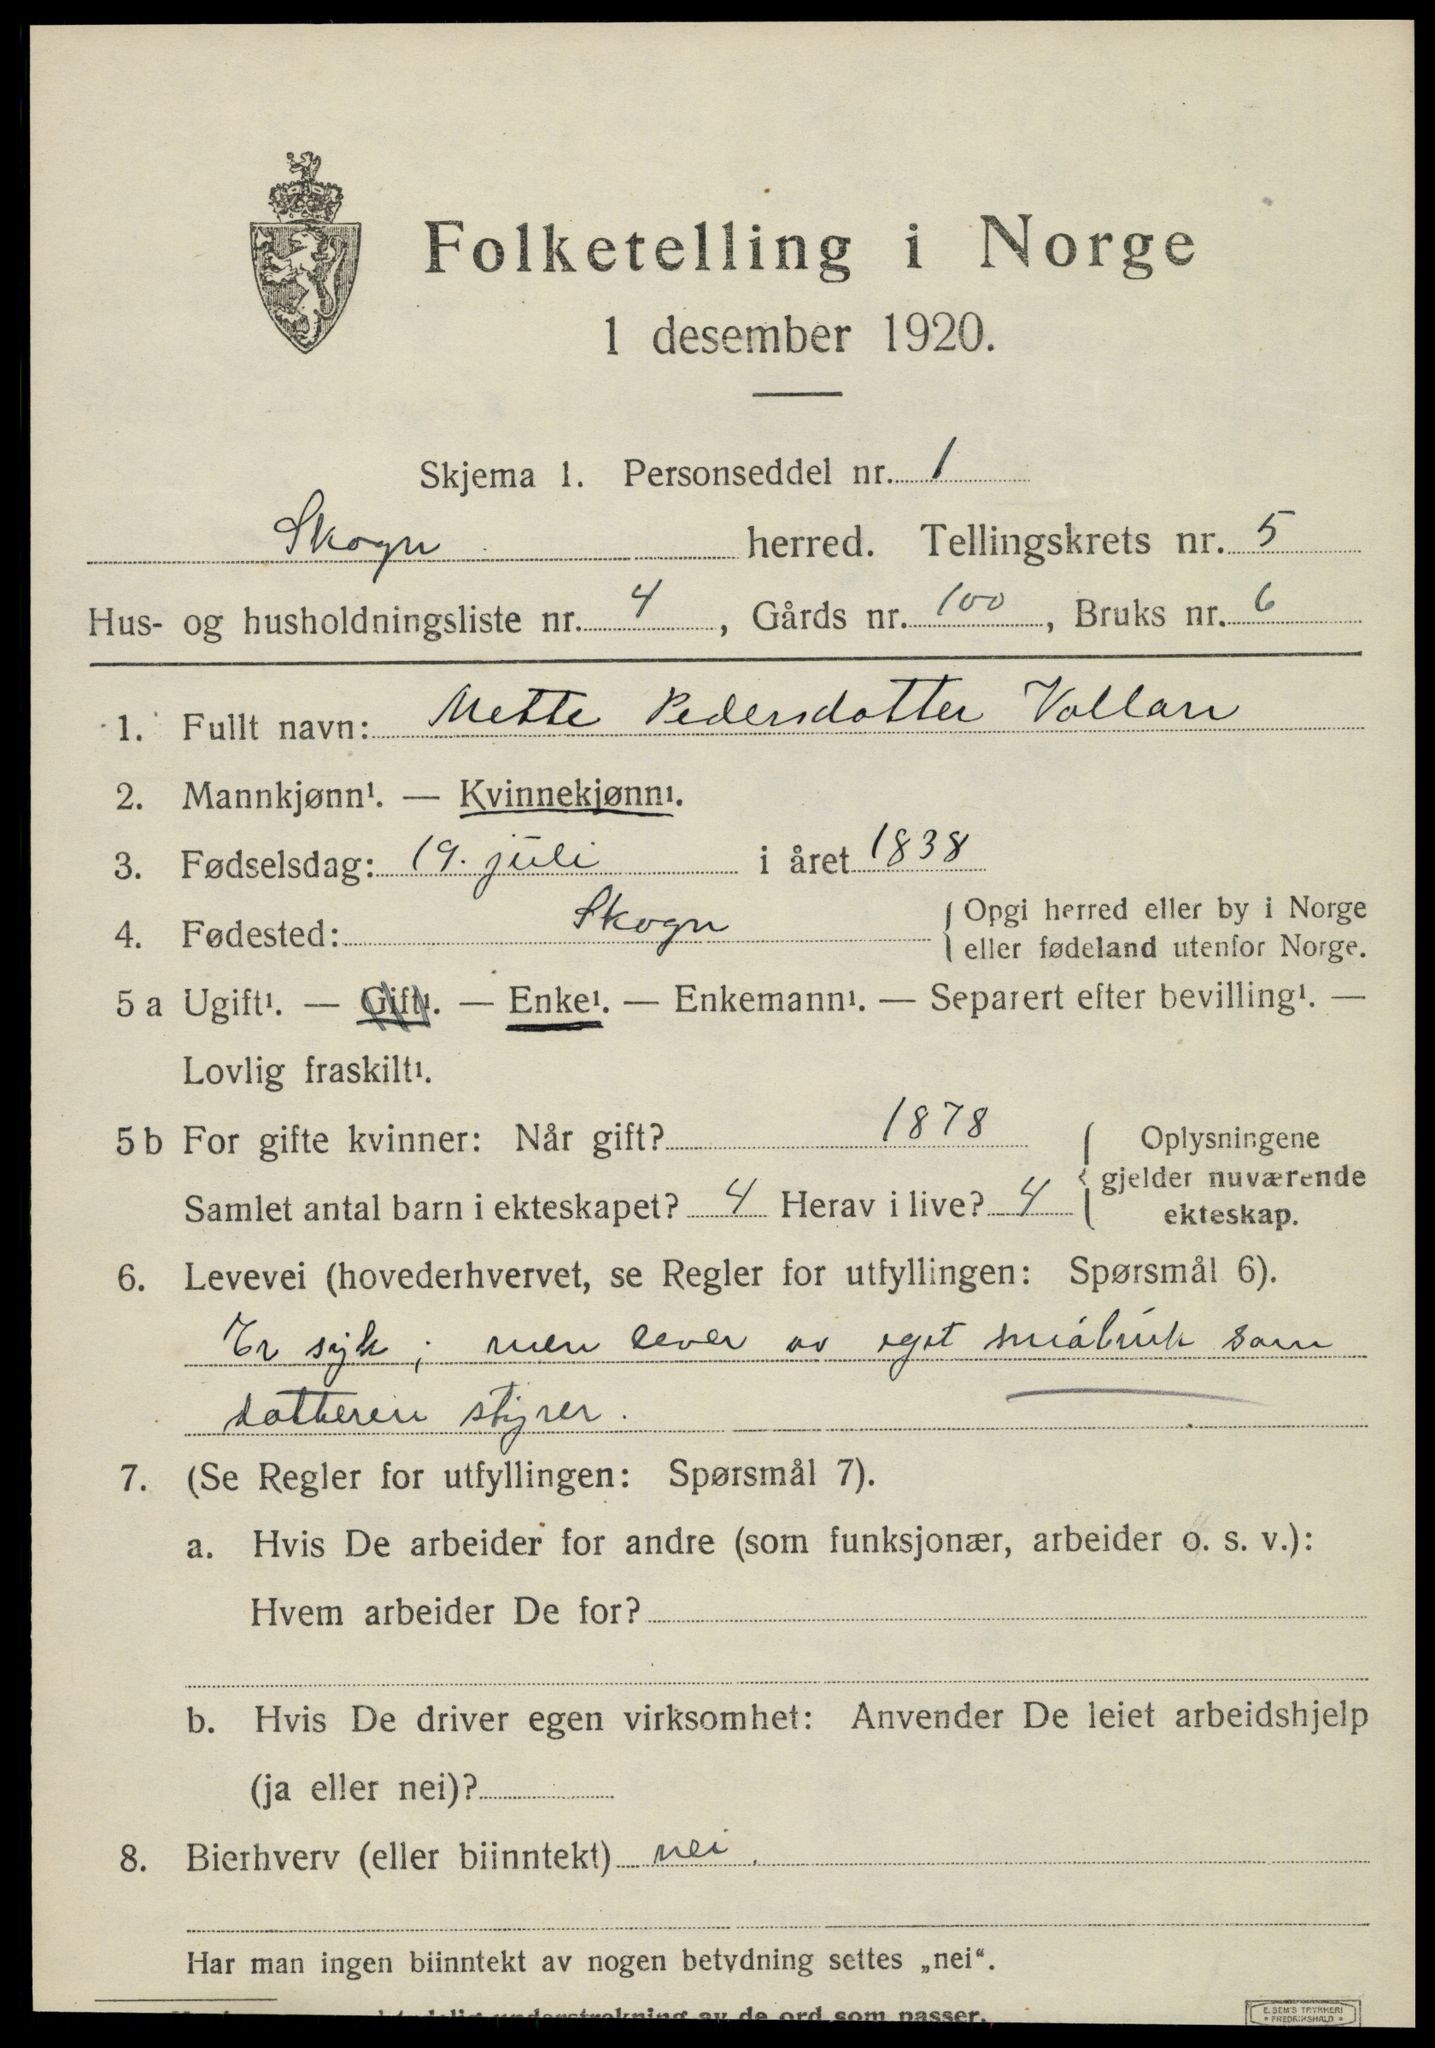 Folketelling i Norge
1 desember 1920.
Skjema 1. Personseddel nr. 1
Skogn herred. Tellingskrets nr. 5
Hus- og husholdningsliste nr. 4, Gårds nr. 100, Bruks nr. 6
1. Fullt navn: Mette Pedersdotter Vollan
2. Mannkjønn¹. — Kvinnekjønn¹.
3. Fødselsdag: 19. juli i året 1838
4. Fødested: Skogn { Opgi herred eller by i Norge
eller fødeland utenfor Norge.
5 a Ugift¹. — Gift¹. — Enke¹. — Enkemann¹. — Separert efter bevilling¹. —
Lovlig fraskilt¹.
5 b For gifte kvinner: Når gift? 1878 { Oplysningene
gjelder nuværende
Samlet antal barn i ekteskapet? 4 Herav i live? 4 ekteskap.
6. Levevei (hovederhvervet, se Regler for utfyllingen: Spørsmål 6).
Er syk; men lever av eget småbruk som
datteren styrer.
7. (Se Regler for utfyllingen: Spørsmål 7).
a. Hvis De arbeider for andre (som funksjonær, arbeider o. s. v.):
Hvem arbeider De for?
b. Hvis De driver egen virksomhet: Anvender De leiet arbeidshjelp
(ja eller nei)?
8. Bierhverv (eller biinntekt) nei.
Har man ingen biinntekt av nogen betydning settes „nei“.
understrekning av de ord som passer.
E. SEM'S TRYKKERI
FREDRIKSHALD